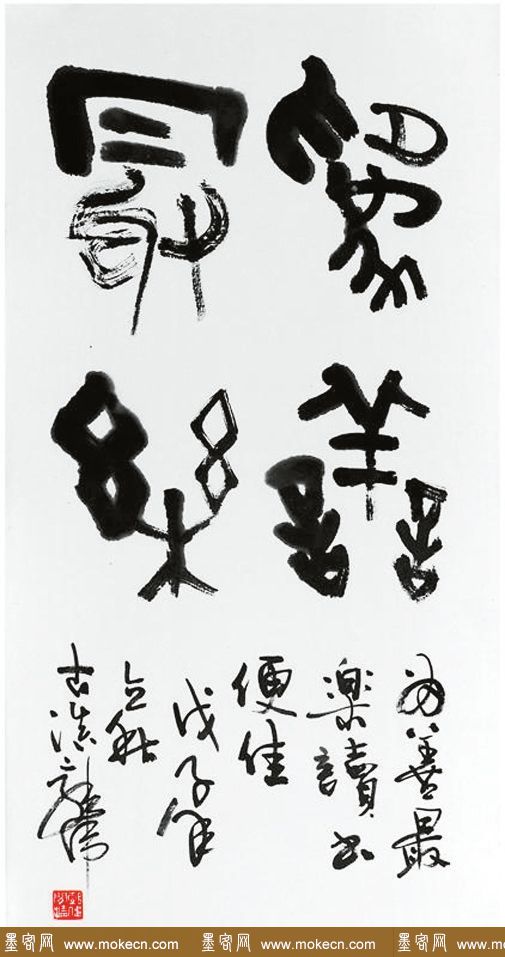 為善
最樂
為善最
樂讀書
便佳
戊子年
立秋
古滇
墨客网 www.mokecn.com 墨客网 www.mokecn.com 墨客网 www.mokecn.com